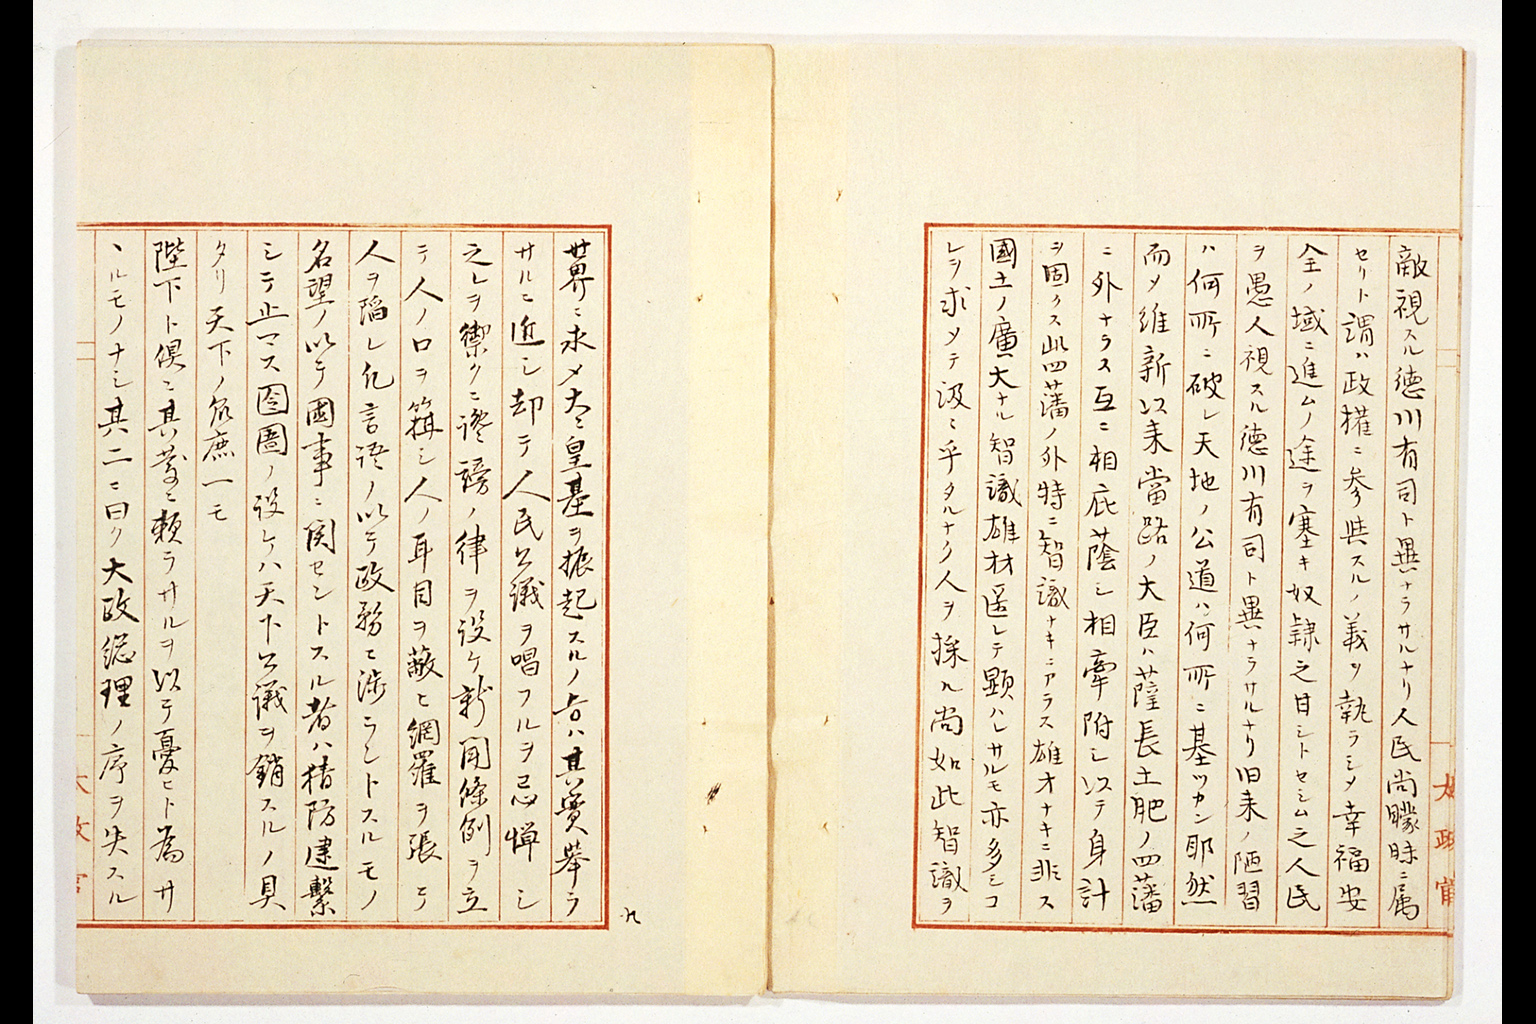 敵視スル徳川有司ト異ナラサルナリ人民尚矇昧ニ属
セリト謂ハ政権ニ参与スルノ義ヲ執ラシメ幸福安
全ノ域ニ進ムノ途ヲ塞キ奴隷之甘シトセシム之人民
ヲ愚人視スル徳川有司ト異ナラサルナリ旧来ノ陋習
ハ何所ニ破レ天地ノ公道ハ何所ニ基ツカン耶然
而メ維新以来當路ノ大臣ハ薩長土肥ノ四藩
ニ外ナラス互ニ相庇蔭シ相牽附シ以テ身計
ヲ固クス此四藩ノ外特ニ智識ナキニアラス雄才ナキニ非ス
國土ノ廣大ナル智識雄材遥レテ顕ハレサルモ亦多シコ
レヲ求メテ汲々乎タルナク人ヲ採ル尚如此智識ヲ
世界ニ求メ大ニ皇基ヲ振起スルノ言ハ其實挙ラ
サルニ近シ却テ人民公議ヲ唱フルヲ忌憚シ
之レヲ禦クニ讒謗ノ律ヲ設ケ新聞條例ヲ立
テ人ノ口ヲ箝シ人ノ耳目ヲ蔽ヒ網羅ヲ張テ
人ヲ陥レ凡言語ノ以テ政務ニ渉ラントスルモノ
名望ノ以テ國事ニ関セントスル者ハ猜防逮繋
シテ止マス囹圄ノ設ケハ天下公議ヲ銷スルノ具
タリ天下ノ衆庶一モ
陛下ト倶ニ其慶ニ頼ラサルヲ以テ憂ヒト為サ
ヽルモノナシ其二ニ曰ク大政総理ノ序ヲ失スル
太政官
九